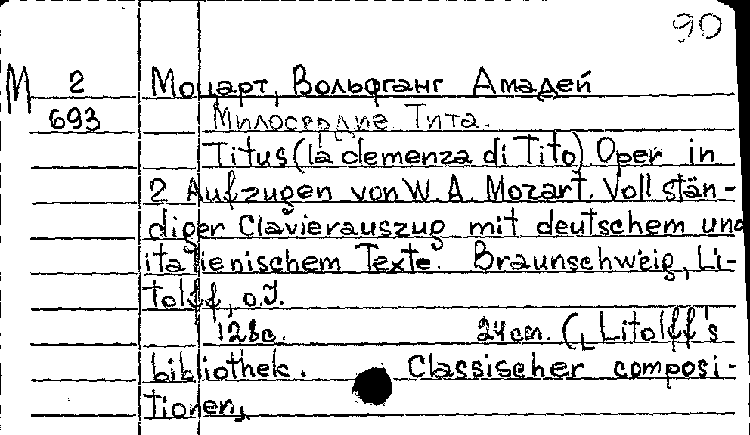 90
М 2 Моцарт, Вольфганг Амадей
693 Милосердие Тита.
Titus (la clemenza di Tito) Oper in
2 Aufzugen von W. A. Mozart. Voll stän-
diger Clavierauszug mit deutschem und
italienischem Texte. Braunschweig, Li-
tolff, o.J.
128c. 24cm. („Litolff's
bibliothek. Classischer composi-
tionen„